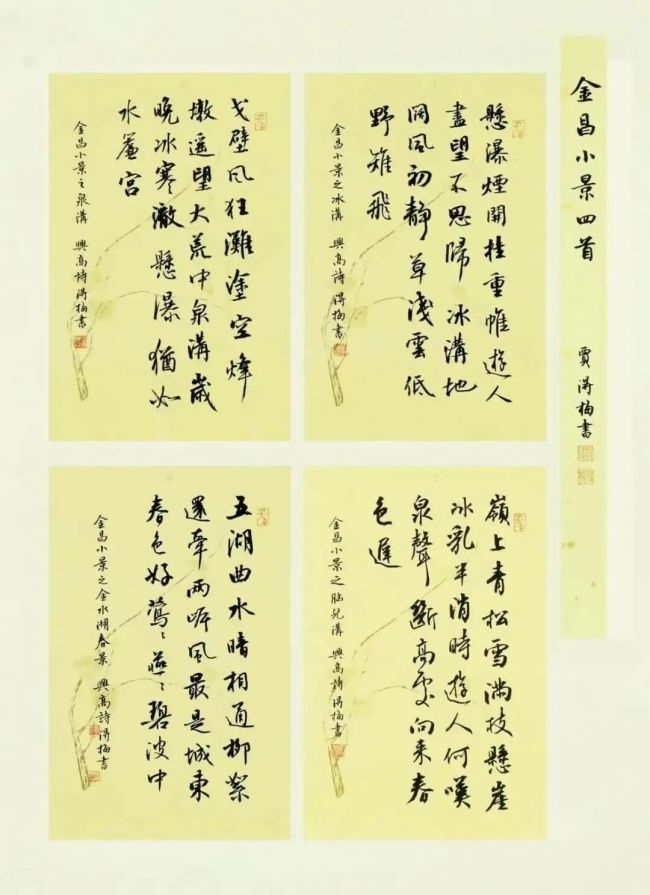 金昌小景四首
賈得梅書
懸瀑煙開挂重帷遊人
盡望不思歸冰溝地
闊風初靜草淺雲低
野雉飛
金昌小景之冰溝 興高詩得梅書
戈壁風狂灘塗空烽
墩遥望大荒中泉溝歲
晚冰寒澈懸瀑猶如
水簾宫
金昌小景之泉溝 興高詩得梅書
嶺上青松雪滿枝懸崖
冰乳半消時遊人何嘆
泉聲斷高處向来春
色遲
金昌小景之腦兒溝 興高詩得梅書
五湖曲水暗相通柳絮
還牽兩岸風最是城東
春色好鶯〻燕〻碧波中
金昌小景之金水湖春景 興高詩得梅書